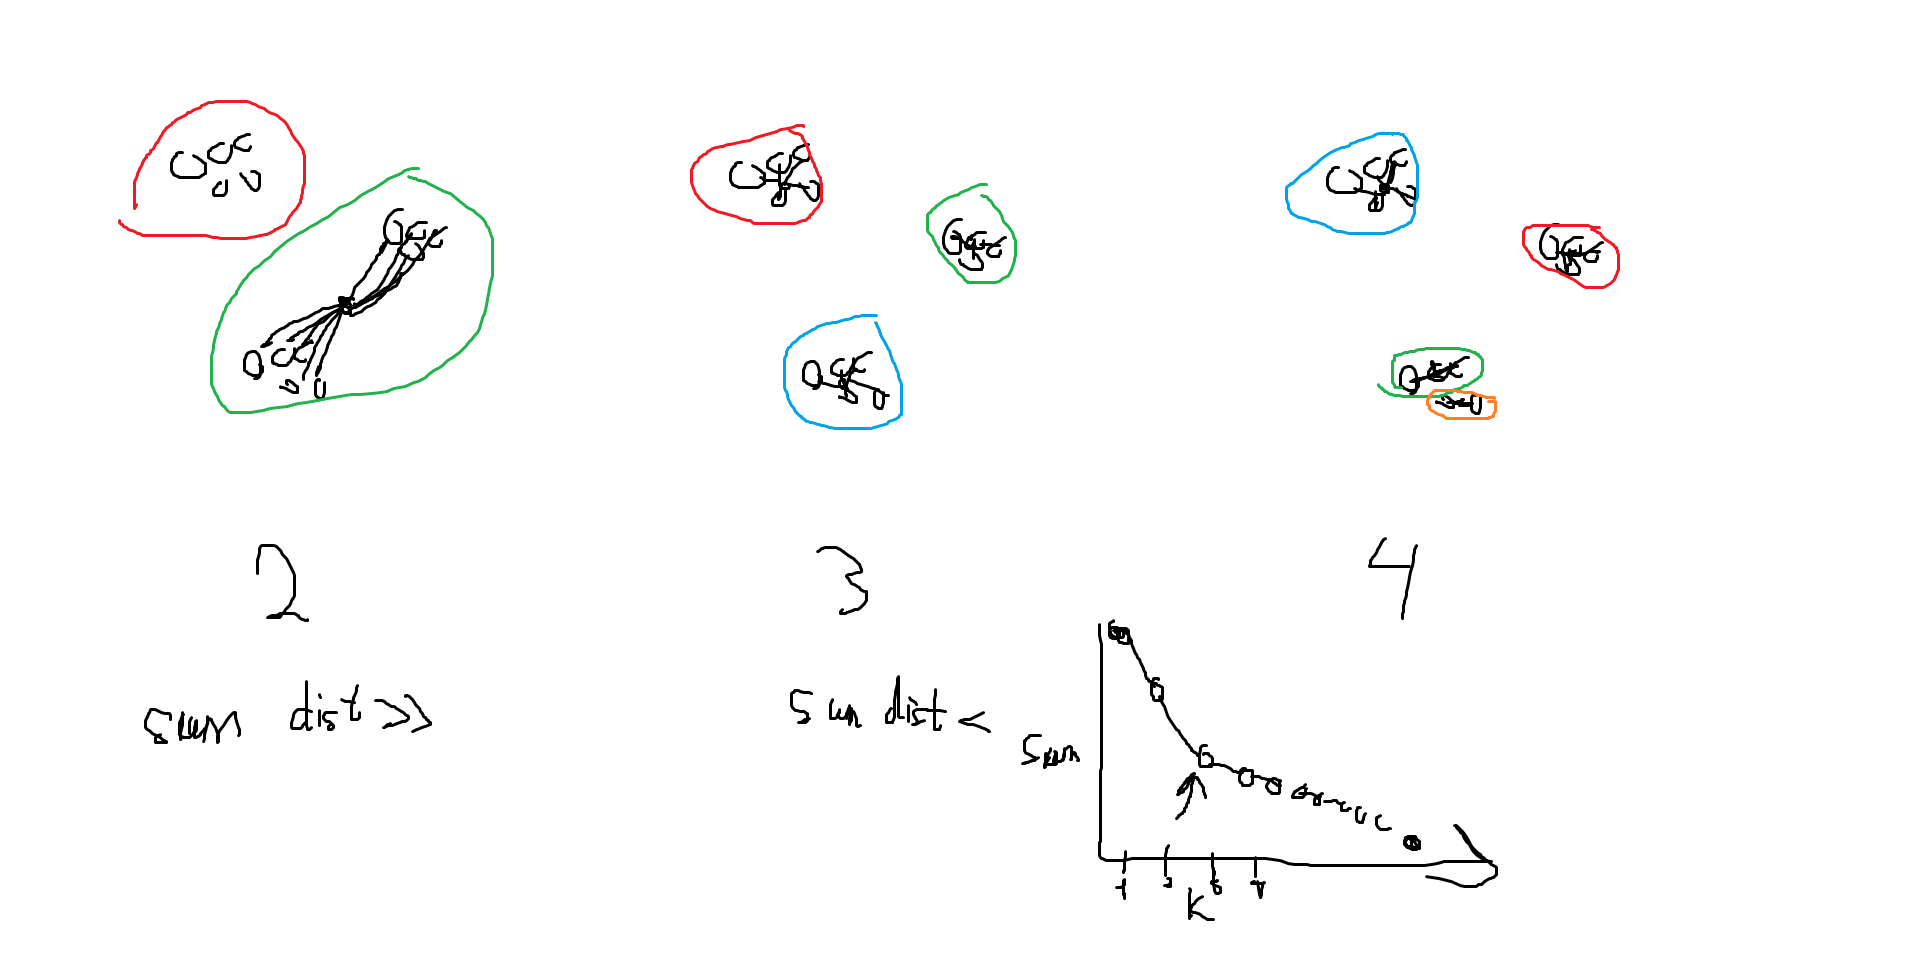 2
3
4
sum dist >>
sum dist <
sum
1 2 3 4
K